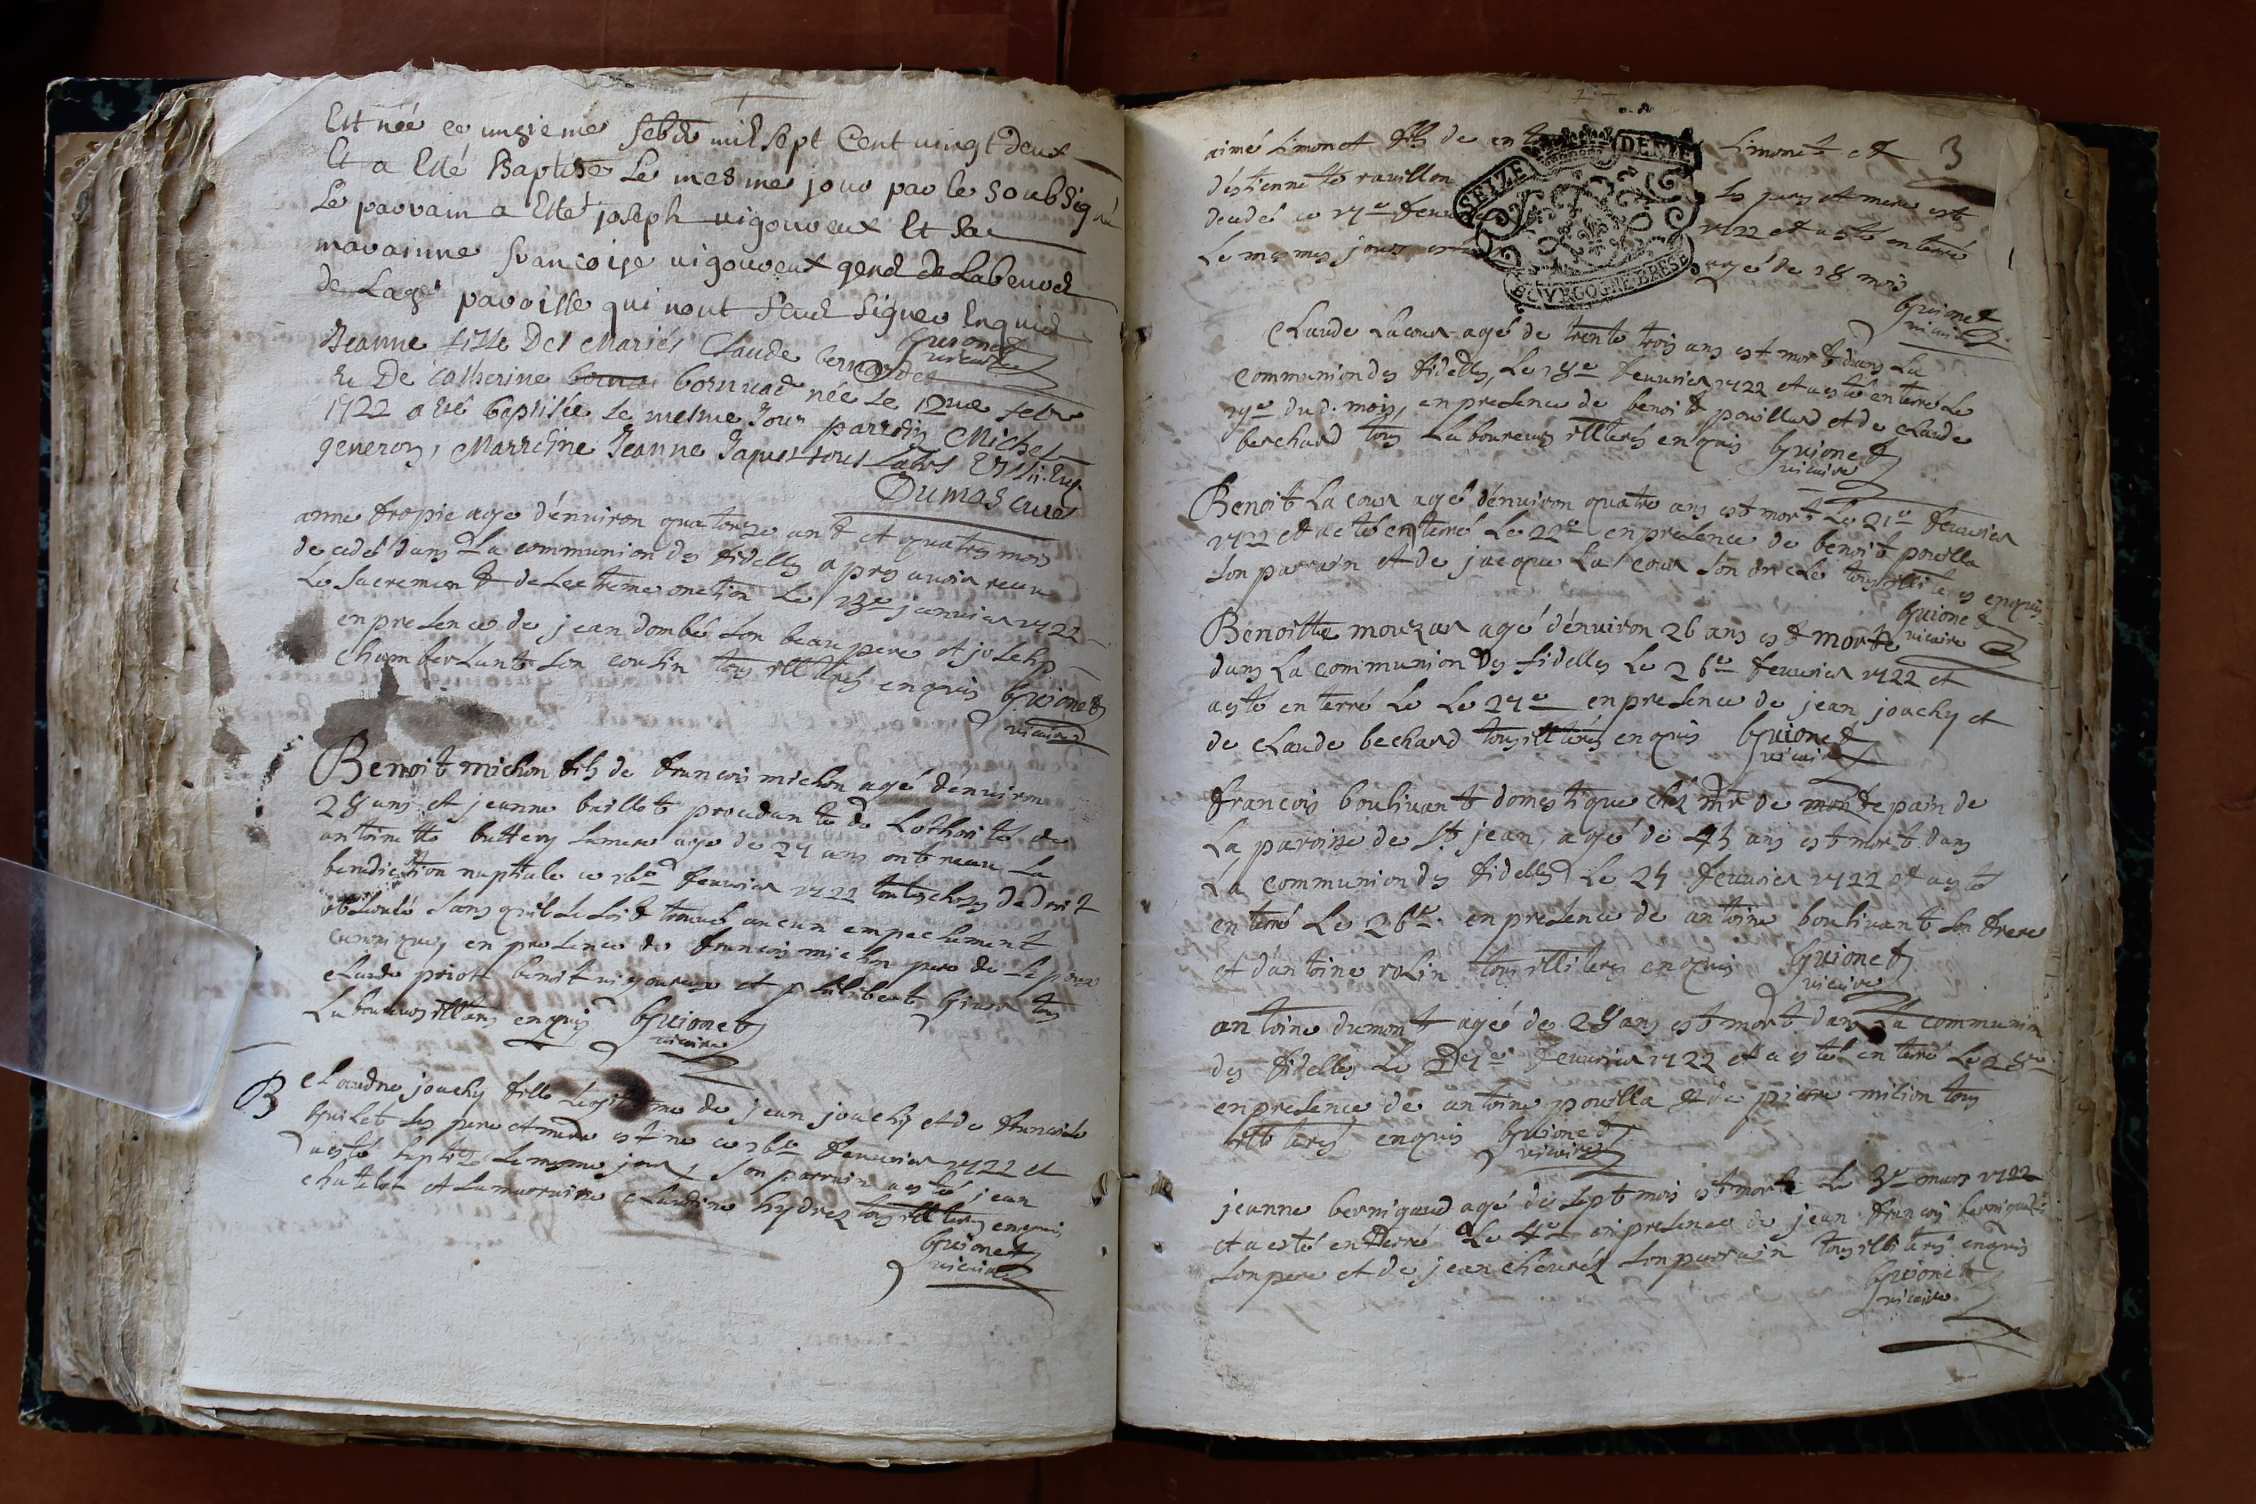 Est née ce unzieme febr mil sept Cent vingt deux
Et a Esté Baptisée Le mesme jour par le soubsigné
Le parrain a Esté joseph vigoureux Et sa
maraine françoise vigoureux gend de Labenod
de Lage paroisse qui nont sceu signer Enquis
Guionet
vicaire
Jeanne fille Des Mariés Claude bernardet
et De Catherine borna bornuad née le 12me febr
1722 a esté baptisée le mesme Jour parrein Michel
generon, Marreine Jeanne Jaques tous
Dumas curé
anne fropie age d'environ quatorze ant et quatres mois
decedeé dans La communion des fidelles apres avoir receu
Le Sacrement de Lectreme onction Le 13e janvier 1722
en presence de jean dombé son beau pere et josehp
Chamberlant son cousin tous illiterés enquis Guionet
vicaire
Benoit michon fils de francois michon agé d'environ
28 ans et jeanne baillot procedante de Lothorité de
antoinette buttery sa mere age de 24 ans ont receu La
benediction nuptiale ce 16e fevrier 1722 toutes choses de droit
observé sans quil se soit trouvé aucun empechement
canonique, en presence de francois michon pere de Lepoux
claude priost benoit vigoureux et philibert tous
Laboureurs illiterés enquis Guionet
vicaire
B Claudine jouchy fille Legitime de jean jouchy et de francoise
Guilet ses pere et mere est ne ce 16e fevrier 1722 et
a esté baptisé le meme jour, son parrain a esté jean
chatelot et la marraine claudine hydrez tous illiterés enquis
Guionet
vicaire
3
SEIZE DENIE
BOURGOGNE BRESE
aimé Limonet fils de Limonet et
d'estiennette ravillon ses pere et mere est
decedé ce 17e fevrier 1722 et a esté enterré
Le mesmes jour agé de 18 mois
Guionet
vicaire
Claude Lacour agé de trente trois ans est mort dans La
Communion des fidelles, Le 18e fevrier 1722 et a esté enterré Le
19e du d. mois, en presence de benoit pouillard et de claude
berchard tous Laboureurs illiterés enquis Guionet
vicaire
Benoit La cour agé d'environ quatre ans est mort Le 21e fevrier
1722 et a esté enterré Le 22e en presence de benoit pouilla
son parrain et de jacque La cour son oncle tous illiterés enquis
Guionet
vicaire
Benoitte mouzar agé d'environ 26 ans est Morte
dans La communion Des fidelles Le 26e fevrier 1722 et
a esté enterré Le Le 27e en presence de jean jouchy et
de claude bechard tous illiterés enquis Guionet
vicaire
francois boulivant domestique chéz Mr de mont de pain de
La paroisse de St jean, agé de 45 ans est mort dans
La communion des fidelles Le 25 fevrier 1722 et a esté
enterré Le 26e en presence de antoine boulivant son frere
et d'antoine rolin tous illiterés enquis Guionet
vicaire
antoine dumont agé des 28 ans est mort dans la communion
des fidelles Le 27e fevrier 1722 et a esté enterré Le 28e
en presence de antoine pouilla et de pierre milion tous
illiterés enquis Guionet
vicaire
jeanne bernigaud agé de sept mois est morte Le 3e mars 1722
et a esté enterré Le 4e en presence de jean francois bernigaud
son pere et de jean cheuréz son parrain tous illiterés enquis
Guionet
vicaire